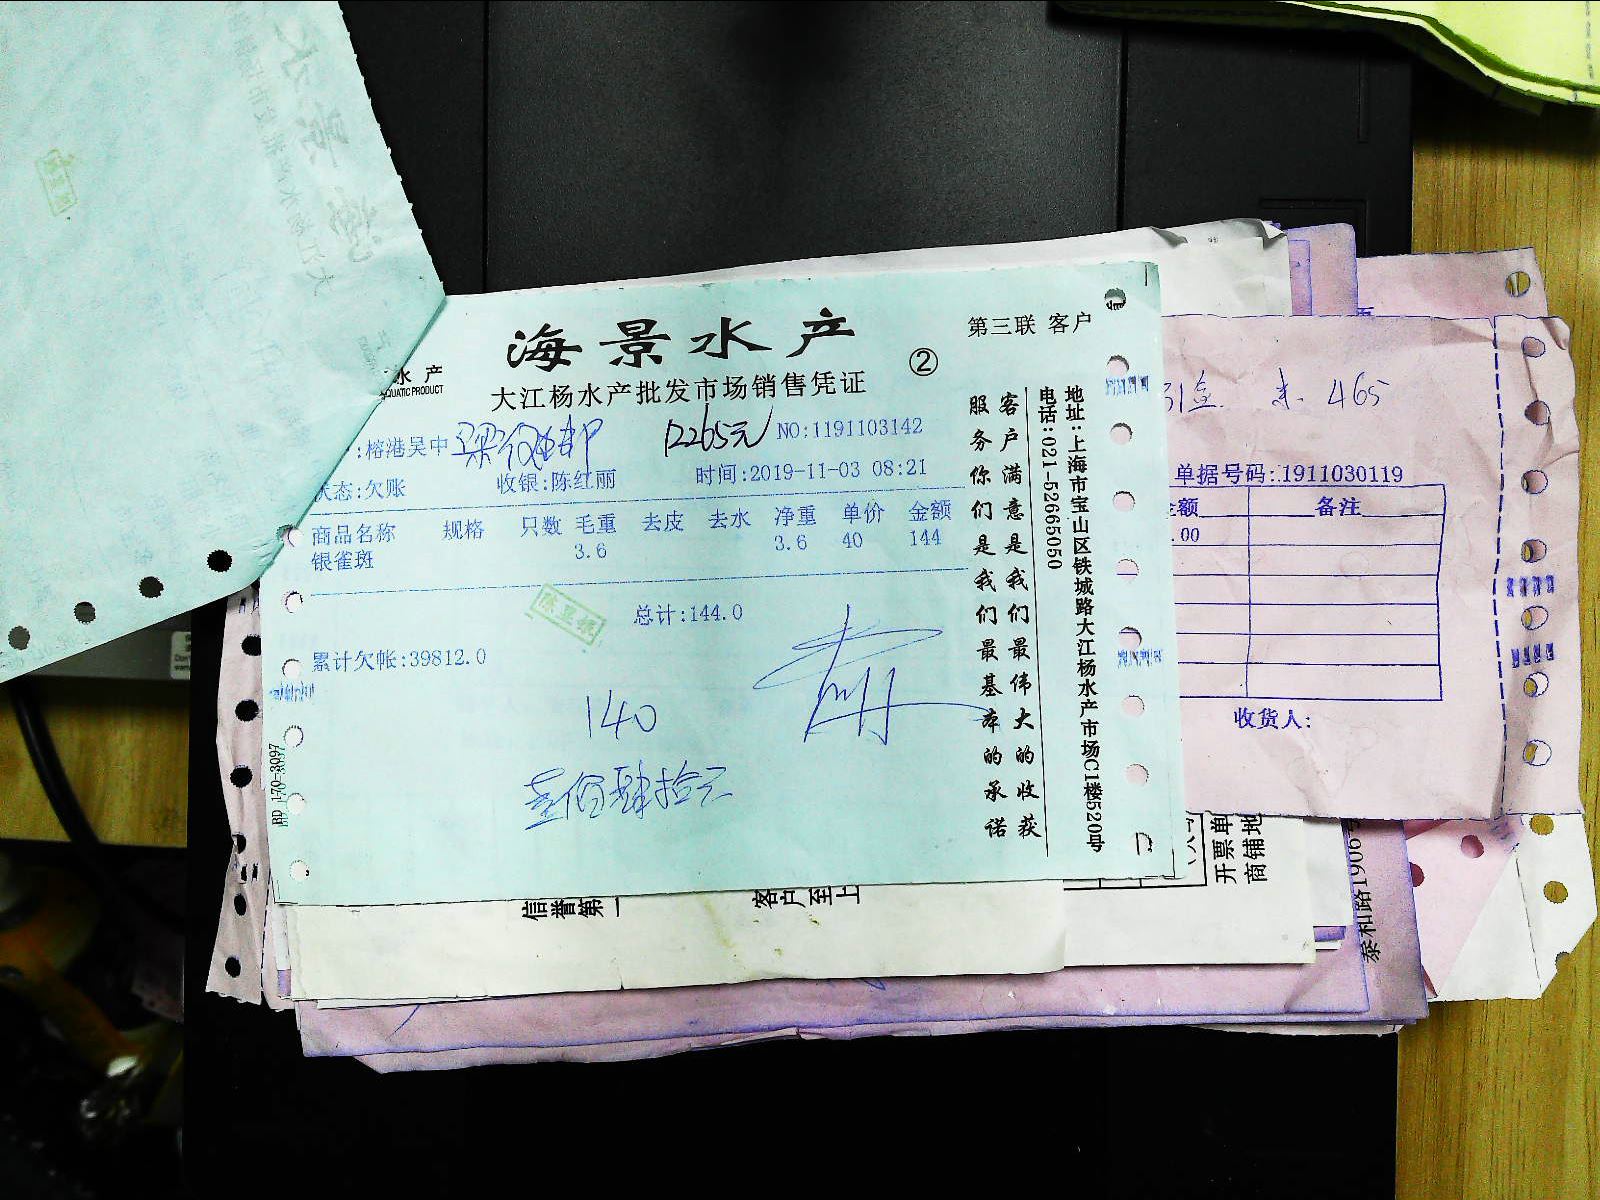 海景水产
大江杨水产批发市场销售凭证
②
第三联 客户
水产
AQUATIC PRODUCT
:榕港吴中
12265元
NO:1191103142
状态:欠账 收银:陈红丽 时间:2019-11-03 08:21
商品名称 规格 只数 毛重 去皮 去水 净重 单价 金额
银雀斑 3.6 3.6 40 144
总计:144.0
累计欠帐:39812.0
140
壹佰肆拾元
客户满意是我们最伟大的收获
服务你们是我们最基本的承诺
地址:上海市宝山区铁城路大江杨水产市场C1楼520号
电话:021-52665050
BD 170-3097
465
单据号码:1911030119
金额 备注
.00
收货人:
信誉第一
客户至上
开票单
商铺地
泰和路1906号